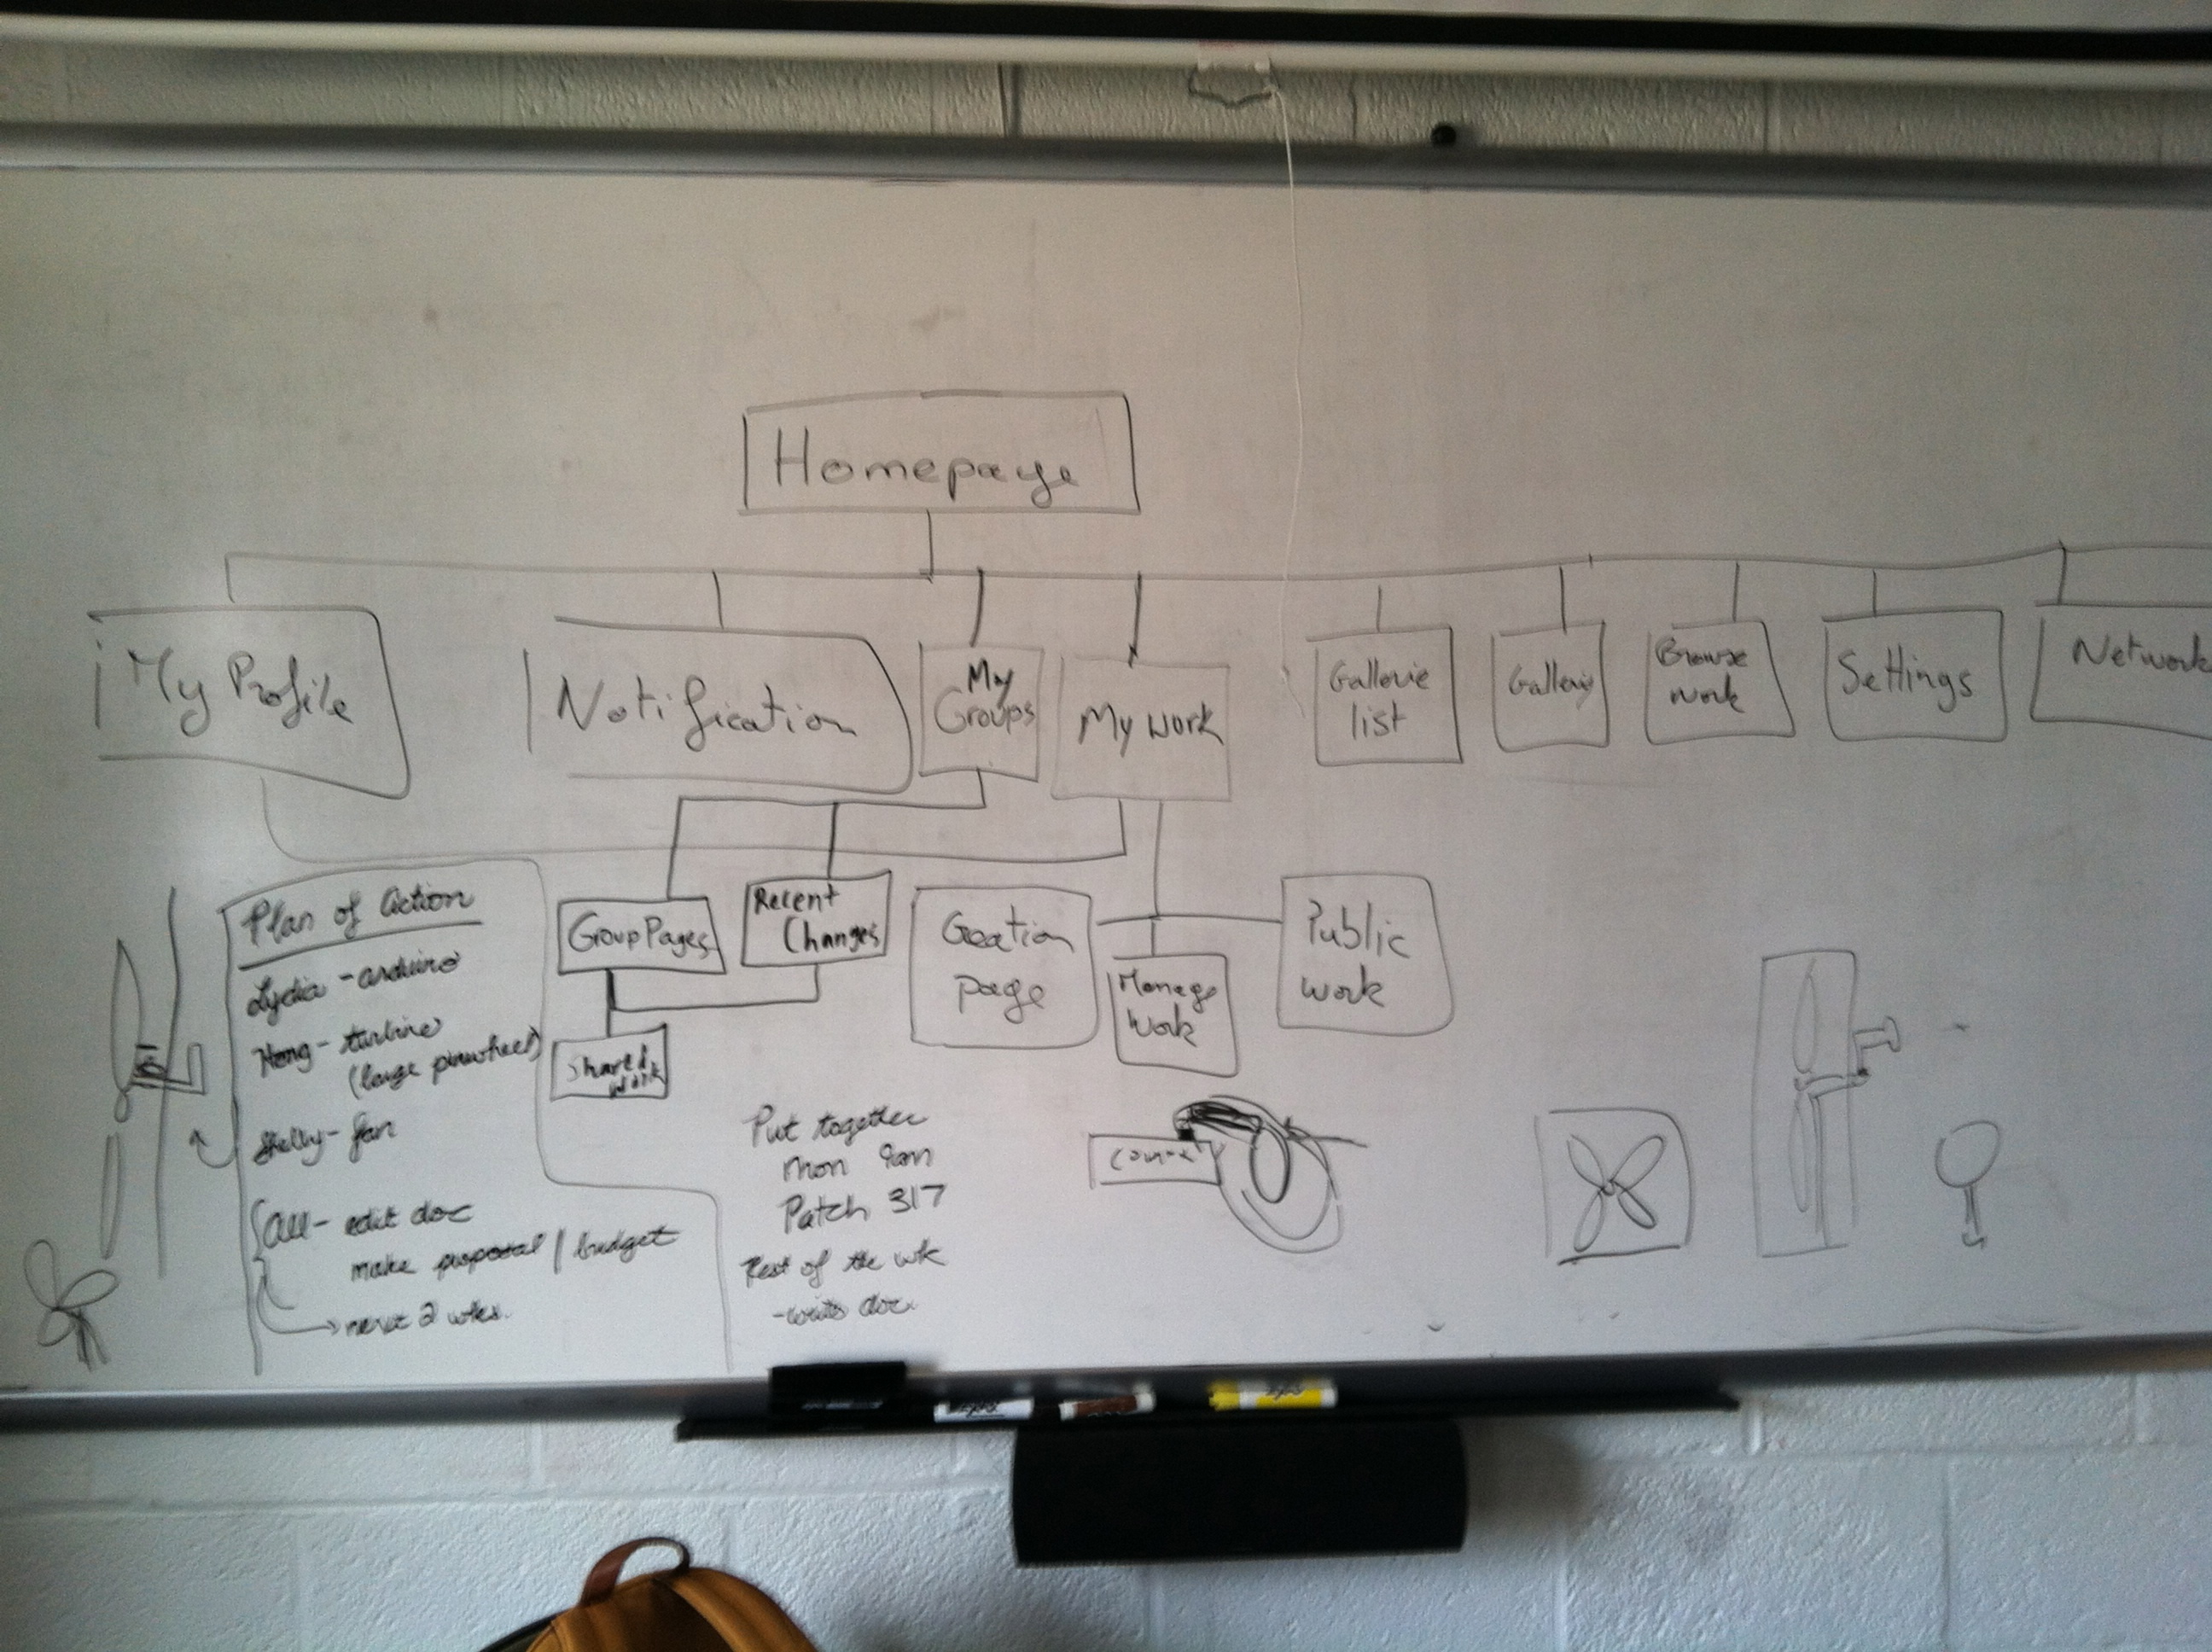 Homepage
My Profile
Notification
My
Groups
My work
Gallerie
list
Gallerie
Browse
work
Settings
Network
Group Pages
Recent
Changes
Shared
work
Creation
page
Manage
work
Public
work
Plan of action
Lydia - arduino
Hong - turbine
(large pinwheel)
Shelly - fan
All - edit doc
make proposal / budget
next 2 wks.
Put together
mon 9am
Patch 317
Rest of the wk
- write doc.